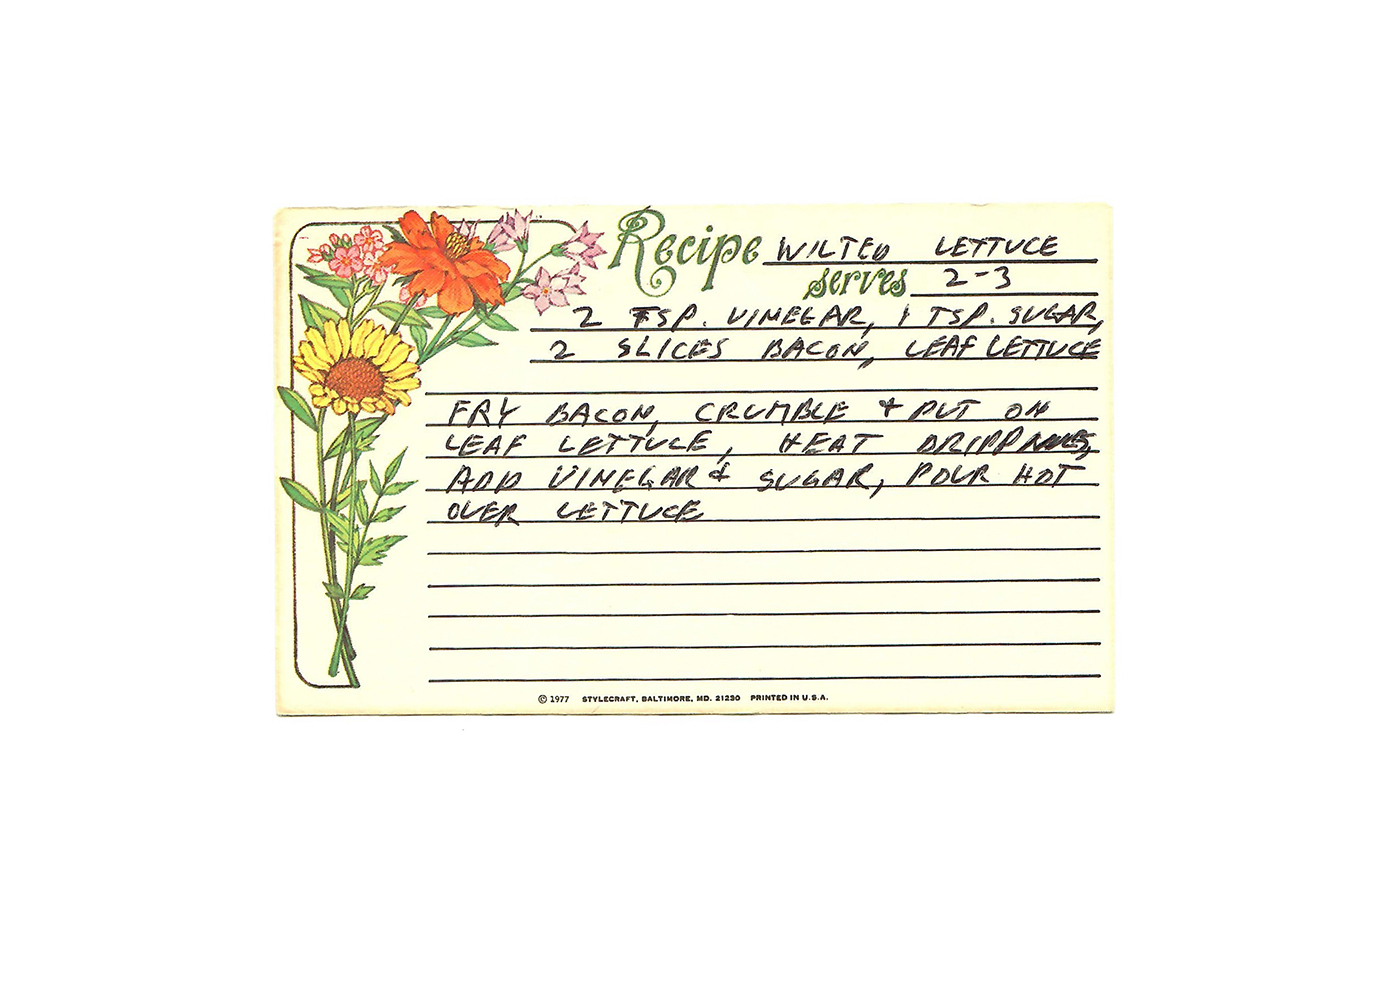 Recipe WILTED LETTUCE
serves 2-3
2 TSP. VINEGAR, 1 TSP. SUGAR,
2 SLICES BACON, LEAF LETTUCE
FRY BACON, CRUMBLE & PUT ON
LEAF LETTUCE, HEAT DRIPPINGS,
ADD VINEGAR & SUGAR, POUR HOT
OVER LETTUCE
© 1977 STYLECRAFT, BALTIMORE, MD. 21230 PRINTED IN U.S.A.